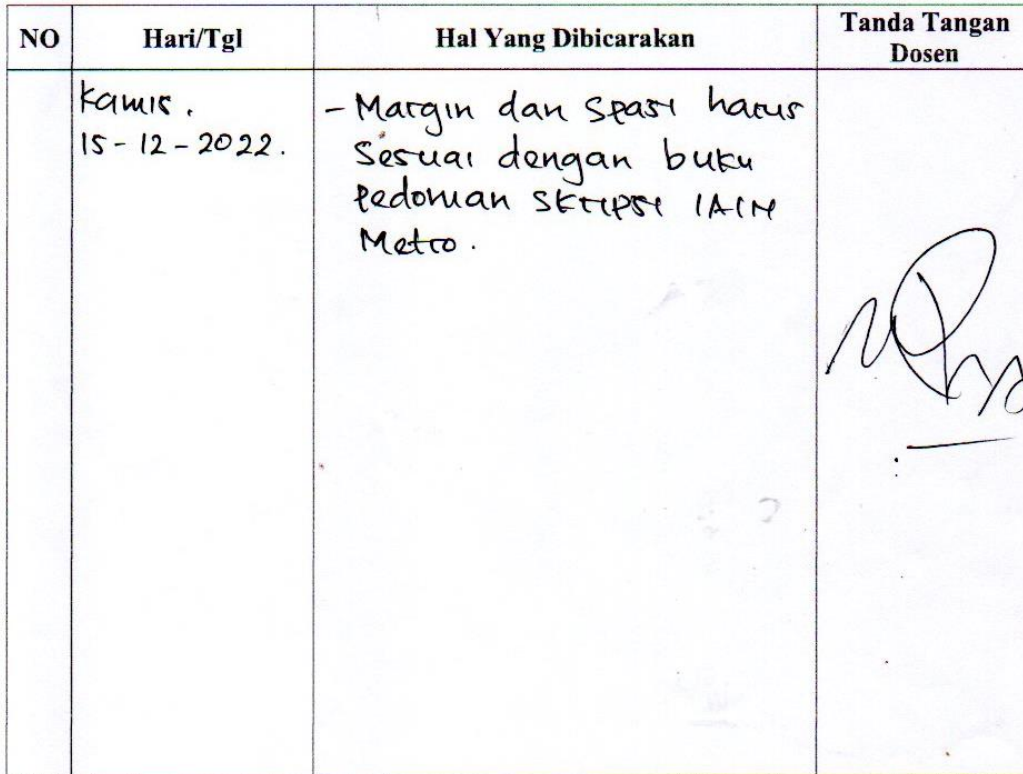 NO Hari/Tgl Hal Yang Dibicarakan Tanda Tangan
Dosen
Kamis. - Margin dan Spasi harus
15-12-2022. Sesuai dengan buku
Pedoman Skripsi IAIN
Metro.